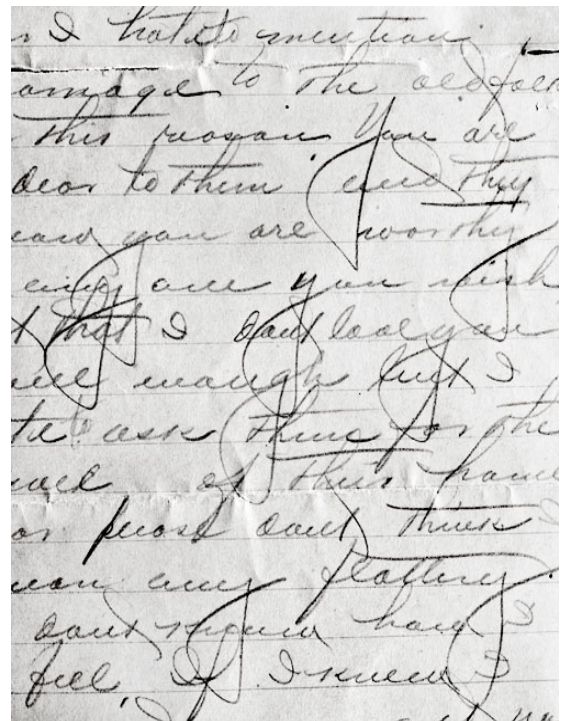 I hate to mention
to the old folk
this reason You are
dear to them and they
you are worthy
any one you wish
that I dont love you
well enough but I
ask them for the
of their home
please dont think I
any flattery
dont know how I
feel If I knew I